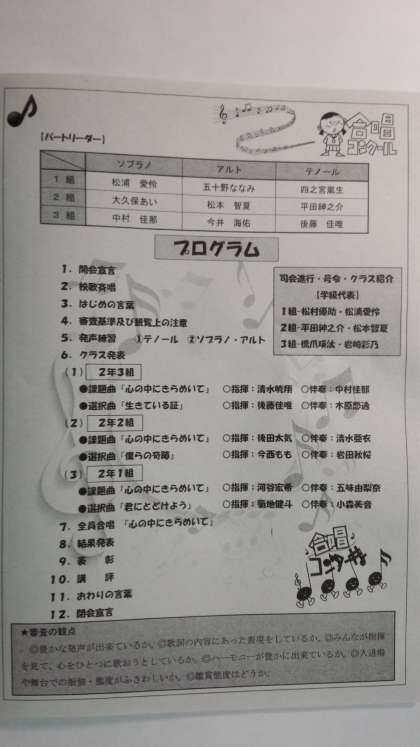 合唱コンクール
【パートリーダー】
ソプラノ アルト テノール
1 組 松浦 愛怜 五十野ななみ 四之宮嵐生
2 組 大久保あい 松本 智夏 平田紳之介
3 組 中村 佳那 今井 海佑 後藤 佳唯
プログラム
1. 開会宣言
2. 校歌斉唱
3. はじめの言葉
4. 審査基準及び観覧上の注意
5. 発声練習 ①テノール ②ソプラノ・アルト
6. クラス発表
司会進行・号令・クラス紹介
【学級代表】
1組-松村優助・松浦愛怜
2組-平田紳之介・松本智夏
3組-橋爪瑛汰・岩崎彩乃
(1) 2年3組
●課題曲「心の中にきらめいて」 ○指揮:清水暁翔 ○伴奏:中村佳那
●選択曲「生きている証」 ○指揮:後藤佳唯 ○伴奏:木原悠過
(2) 2年2組
●課題曲「心の中にきらめいて」 ○指揮:後田太気 ○伴奏:清水亜衣
●選択曲「僕らの奇跡」 ○指揮:今西もも ○伴奏:岩田秋桜
(3) 2年1組
●課題曲「心の中にきらめいて」 ○指揮:河谷宏希 ○伴奏:五味由梨奈
●選択曲「君にとどけよう」 ○指揮:菊地健斗 ○伴奏:小森美音
7. 全員合唱 「心の中にきらめいて」
8. 結果発表
9. 表 彰
10. 講 評
11. おわりの言葉
12. 閉会宣言
合唱コンクール
★審査の観点
◎豊かな発声が出来ているか。◎歌詞の内容にあった表現をしているか。◎みんなが指揮
を見て、心をひとつに歌おうとしているか。◎ハーモニーが豊かに出来ているか。◎入退場
や舞台での服装・態度がふさわしいか。◎鑑賞態度はどうか。